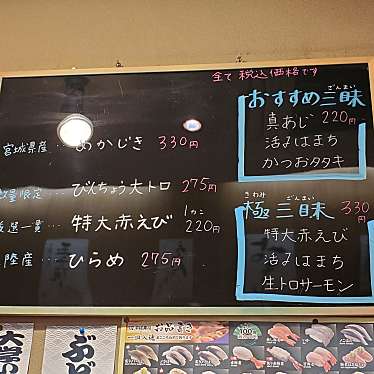 全て税込価格です
宮城県産…めかじき 330円
数量限定…びんちょう大トロ 275円
厳選一貫…特大赤えび 1カン 220円
陸産…ひらめ 275円
おすすめ三昧 ざんまい
真あじ 220円
活〆はまち
かつおタタキ
極 三昧 きわみ ざんまい 330円
特大赤えび
活〆はまち
生トロサーモン